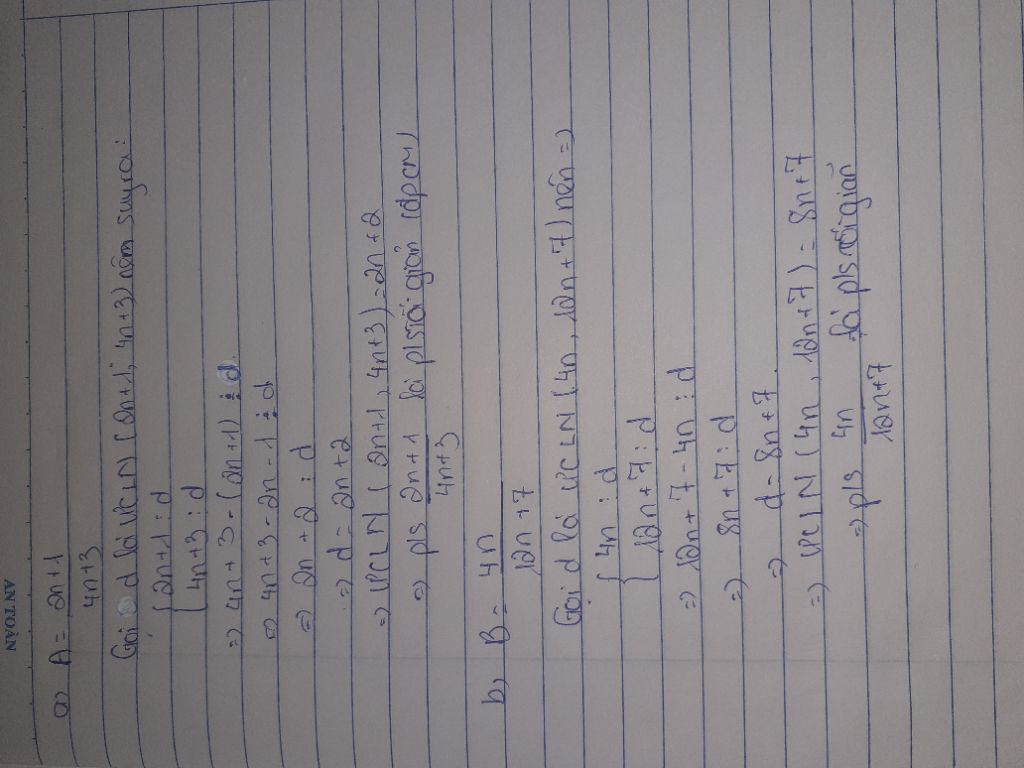 AN TOÀN
a, A = 2n+1
4n+3
Gọi d là ƯCLN (2n+1, 4n+3) nên suy ra:
{ 2n+1 ⋮ d
{ 4n+3 ⋮ d
=> 4n+3 - (2n+1) ⋮ d
=> 4n+3 - 2n - 1 ⋮ d
=> 2n+2 ⋮ d
=> d = 2n+2
=> ƯCLN (2n+1, 4n+3) = 2n+2
=> pls 2n+1 là pls tối giản (đpcm)
4n+3
b, B = 4n
12n+7
Gọi d là ƯCLN (4n, 12n+7) nên =>
{ 4n ⋮ d
{ 12n+7 ⋮ d
=> 12n+7-4n ⋮ d
=> 8n+7 ⋮ d
=> d = 8n+7
=> ƯCLN (4n, 12n+7) = 8n+7
=> pls 4n là pls tối giản
12n+7